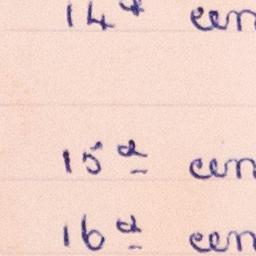 14ª cen
15ª cen
16ª cen